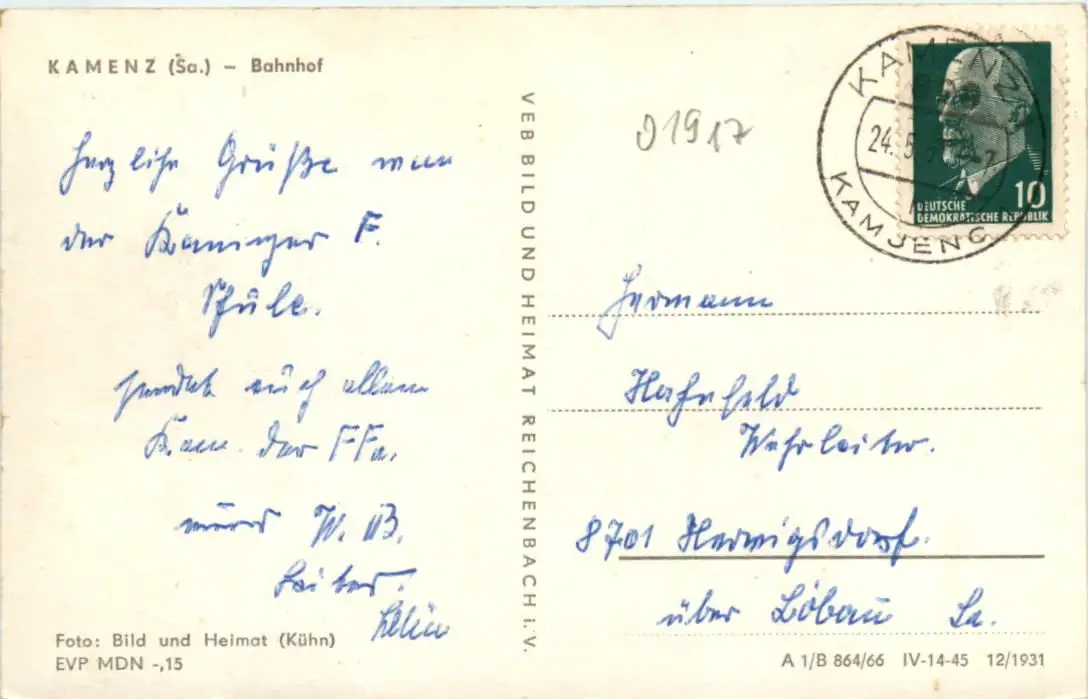 KAMENZ (Sa.) – Bahnhof
Herzliche Grüße von
der Kamenzer F.
Schule.
sendet euch allen
Kam. der FFw.
W.
Leiter.
VEB BILD UND HEIMAT REICHENBACH i. V.
01917
KAMENZ
24.5.
KAMJENC
10
DEUTSCHE
DEMOKRATISCHE REPUBLIK
Hermann
Hahnfeld
Wehrleiter.
8701 Herwigsdorf.
über Löbau Sa.
Foto: Bild und Heimat (Kühn)
EVP MDN -,15
A 1/B 864/66 IV-14-45 12/1931